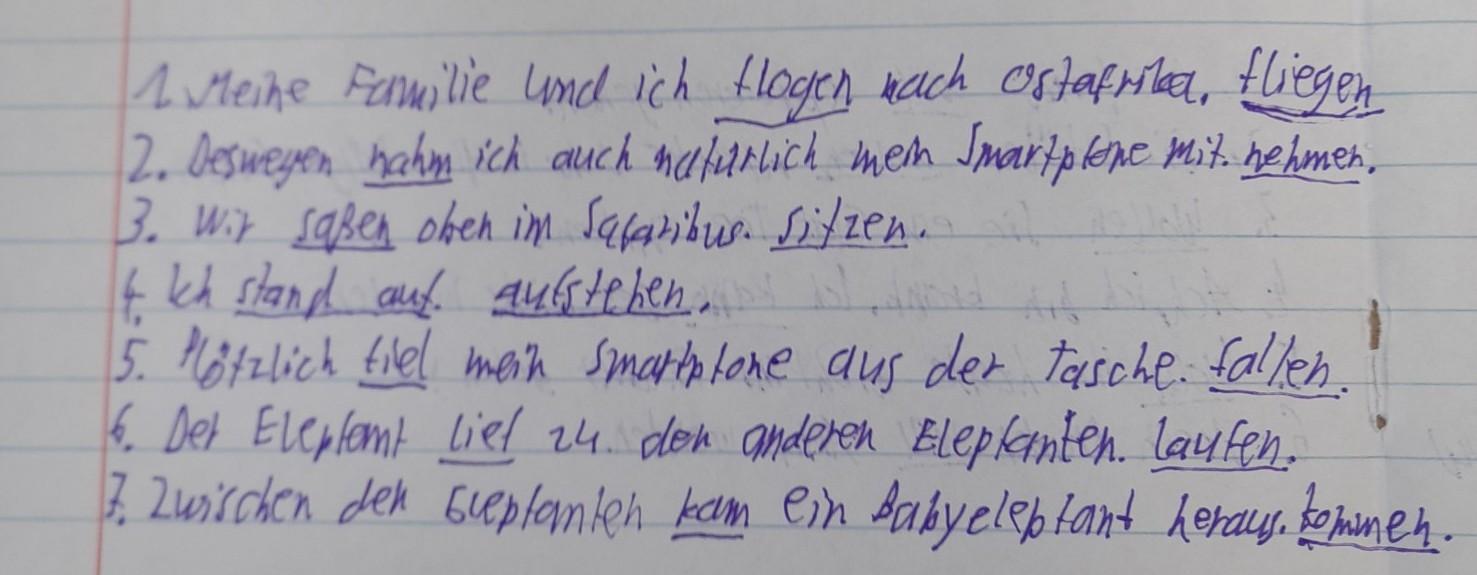 1. Meine Familie und ich flogen nach Ostafrika. fliegen
2. Deswegen nahm ich auch natürlich mein Smartphone mit. nehmen.
3. Wir saßen oben im Safaribus. sitzen.
4. Ich stand auf. aufstehen.
5. Plötzlich fiel mein Smartphone aus der Tasche. fallen.
6. Der Elephant lief zu den anderen Elephanten. laufen.
7. Zwischen den Elephanten kam ein Babyelephant heraus. kommen.